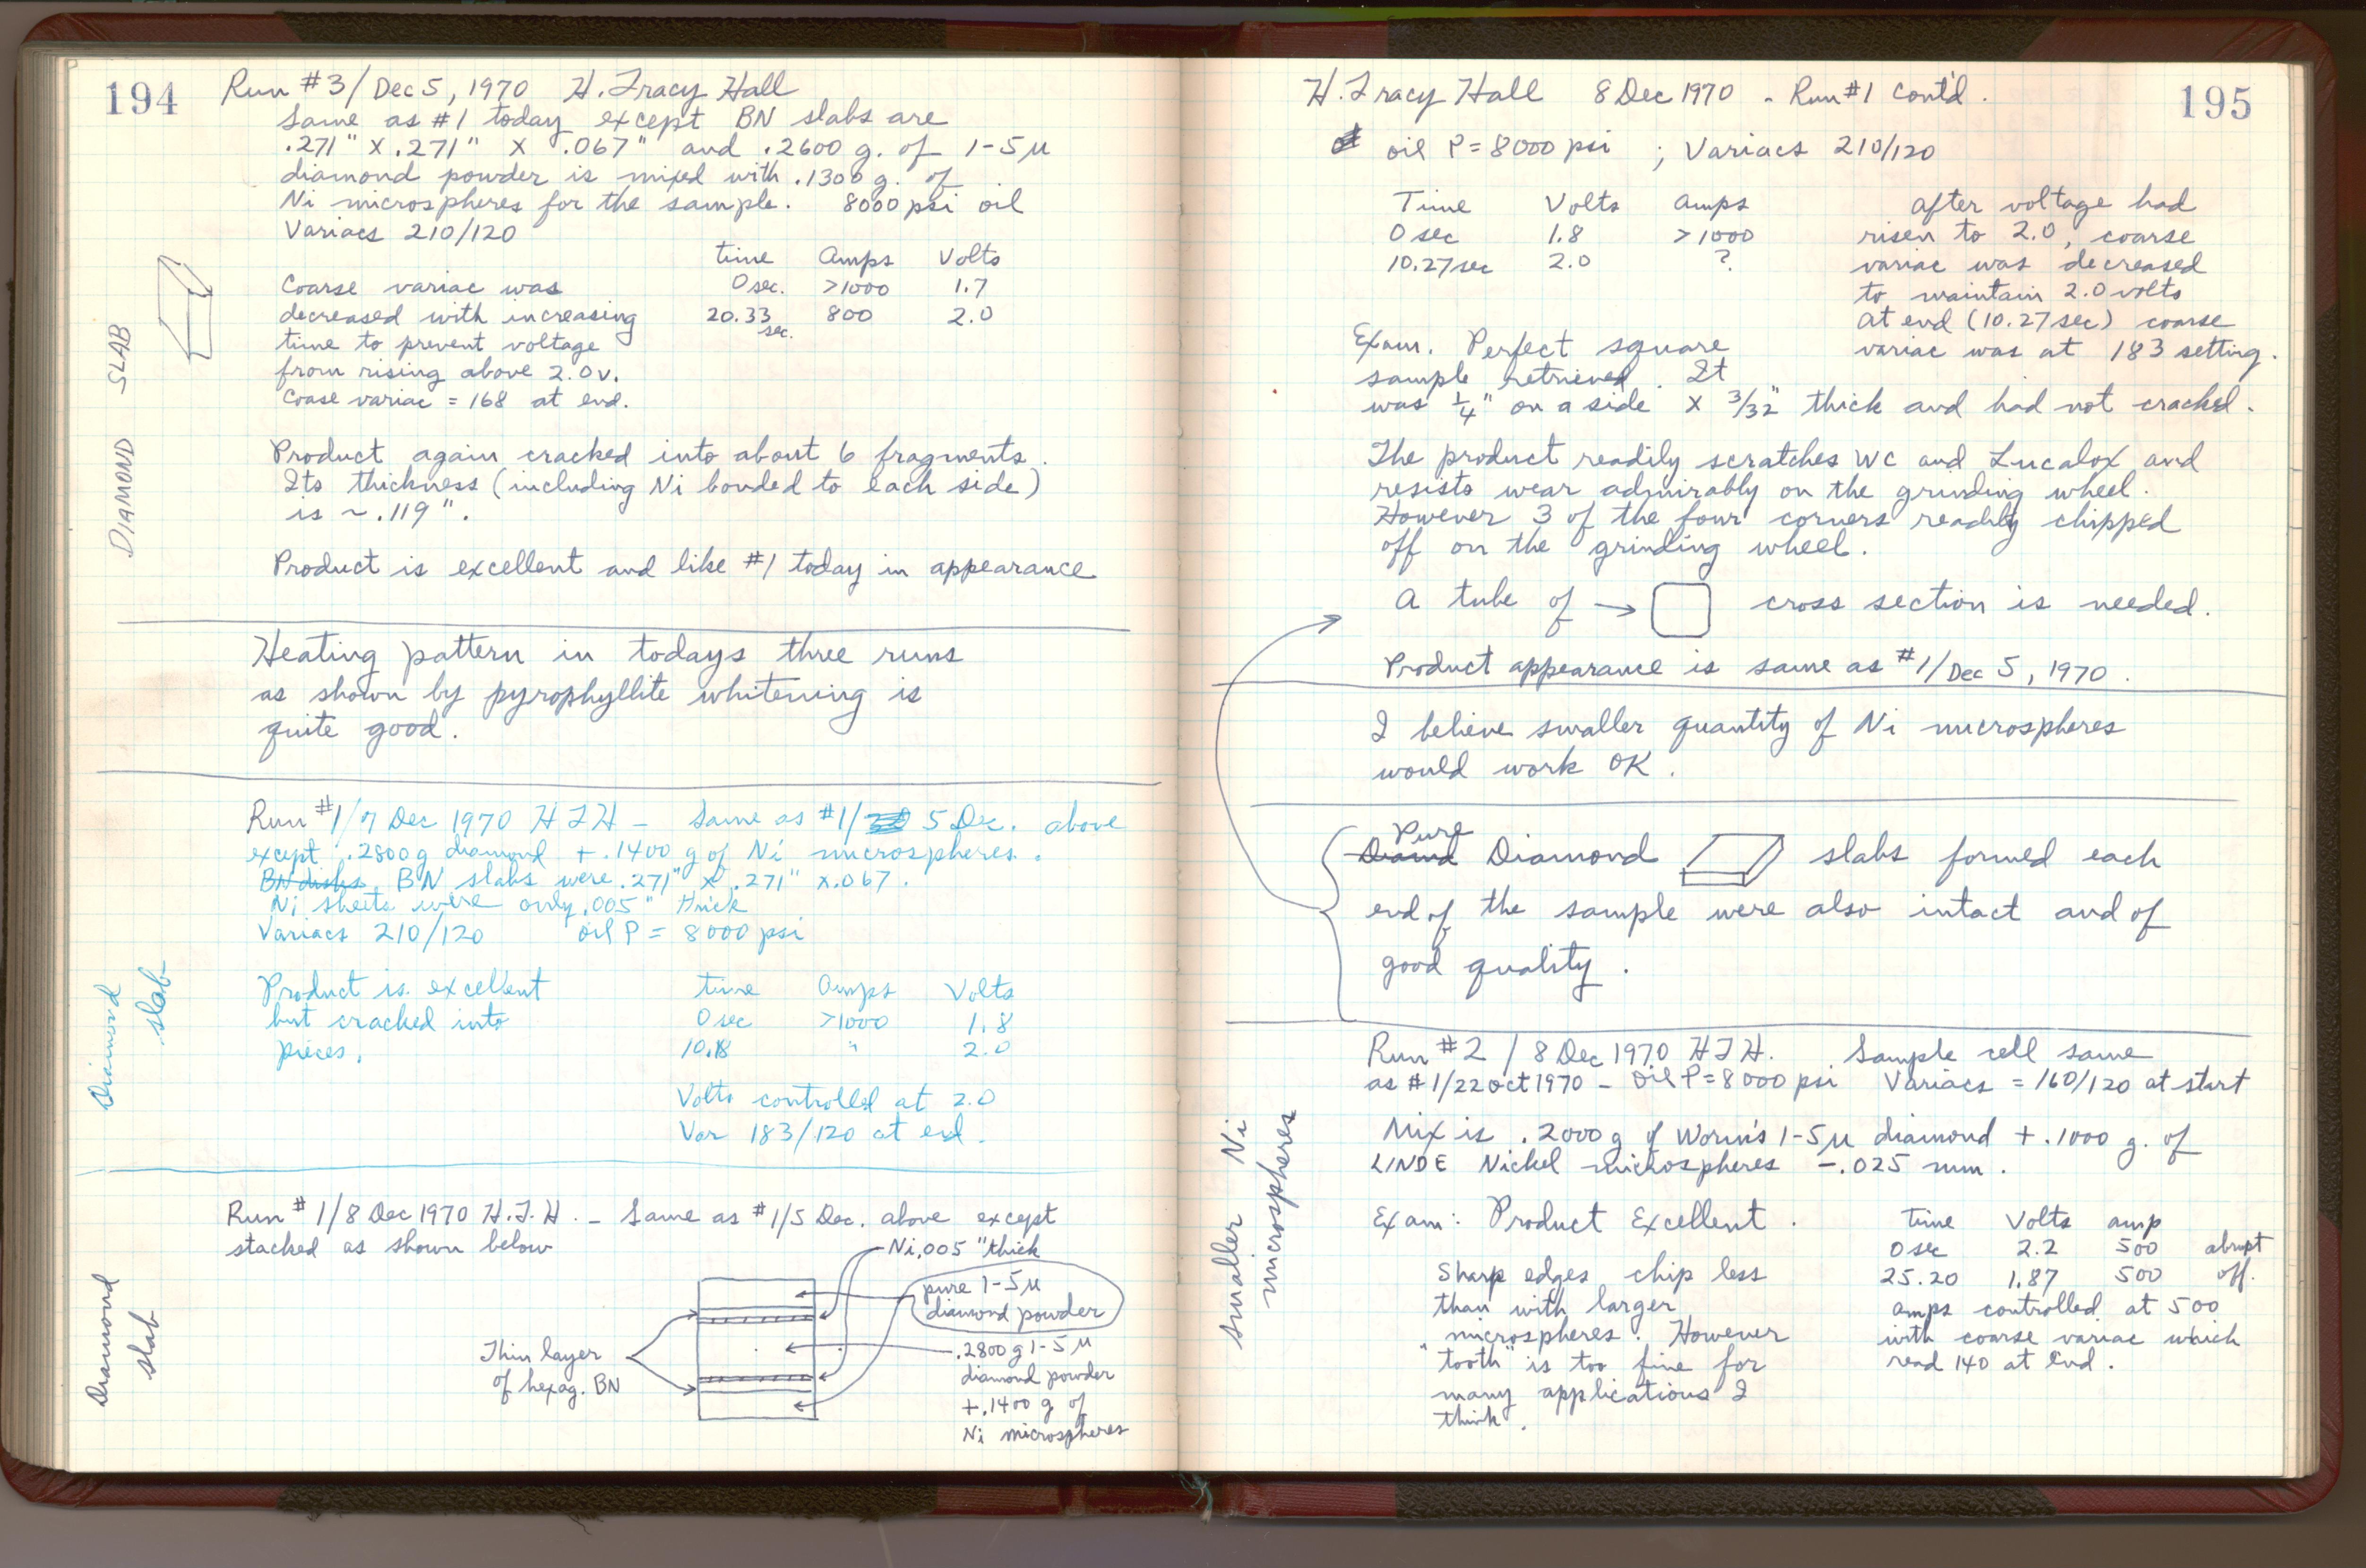 194
Run #3/Dec 5, 1970 H. Tracy Hall
Same as #1 today except BN slabs are
.271" X .271" X .067" and .2600 g. of 1-5 μ
diamond powder is mixed with .1300 g. of
Ni microspheres for the sample. 8000 psi oil
Variacs 210/120
time Amps Volts
0 sec. >1000 1.7
20.33 sec. 800 2.0
Coarse variac was
decreased with increasing
time to prevent voltage
from rising above 2.0 v.
Coase variac = 168 at end.
DIAMOND SLAB
Product again cracked into about 6 fragments.
Its thickness (including Ni bonded to each side)
is ~ .119".
Product is excellent and like #1 today in appearance
Heating pattern in todays three runs
as shown by pyrophyllite whitening is
quite good.
Run #1/7 Dec 1970 HTH - Same as #1/ 5 Dec. above
except .2800 g diamond + .1400 g of Ni microspheres.
BN disks BN slabs were .271" x .271" x .067.
Ni sheets were only .005" thick
Variacs 210/120 oil P = 8000 psi
Product is excellent
but cracked into
pieces.
time Amps Volts
0 sec >1000 1.8
10.18 " 2.0
Volts controlled at 2.0
Var 183/120 at end.
Diamond slab
Run # 1/8 Dec 1970 H.T.H. - Same as #1/5 Dec. above except
stacked as shown below
Ni .005" thick
pure 1-5 μ
diamond powder
Thin layer
of hexag. BN
.2800 g 1-5 μ
diamond powder
+ .1400 g of
Ni microspheres
Diamond slab
H. Tracy Hall 8 Dec 1970 - Run #1 cont'd.
195
oil P = 8000 psi ; Variacs 210/120
Time Volts Amps
0 sec 1.8 >1000
10.27 sec 2.0 ?
After voltage had
risen to 2.0, coarse
variac was decreased
to maintain 2.0 volts
At end (10.27 sec) coarse
variac was at 183 setting.
Exam. Perfect square
sample retrieved. It
was 1/4" on a side X 3/32" thick and had not cracked.
The product readily scratches WC and Lucalox and
resists wear admirably on the grinding wheel.
However 3 of the four corners readily chipped
off on the grinding wheel.
A tube of → cross section is needed.
Product appearance is same as #1/Dec 5, 1970.
I believe smaller quantity of Ni microspheres
would work OK.
Pure
Diamond slabs formed each
end of the sample were also intact and of
good quality.
Run #2 / 8 Dec 1970 HTH. Sample cell same
as #1/22 Oct 1970 - Oil P = 8000 psi Variacs = 160/120 at start
Mix is .2000 g of Worm's 1-5 μ diamond + .1000 g. of
LINDE Nickel microspheres -.025 mm.
Exam: Product Excellent.
Sharp edges chip less
than with larger
microspheres. However
"tooth" is too fine for
many applications I
think.
time Volts amp
0 sec 2.2 500 abrupt
25.20 1.87 500 off.
amps controlled at 500
with coarse variac which
read 140 at end.
smaller Ni
microspheres